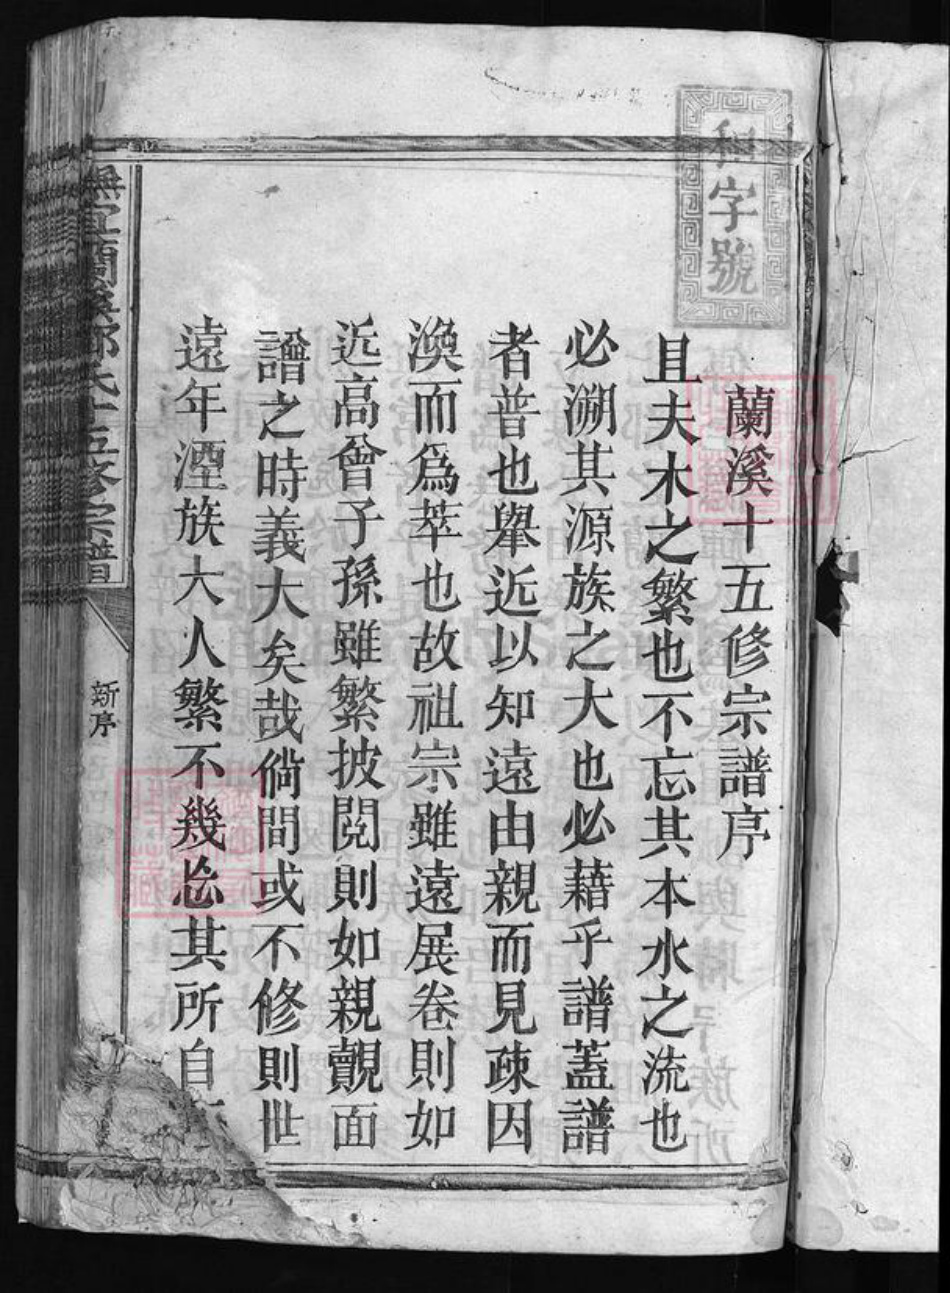 和字號
蘭溪十五修宗譜序
且夫木之繁也不忘其本水之流也
必溯其源族之大也必藉乎譜蓋譜
者普也舉近以知遠由親而見疎因
渙而爲萃也故祖宗雖遠展卷則如
近高曾子孫雖繁披閱則如親覿面
譜之時義大矣哉倘問或不修則世
遠年湮族大人繁不幾忘其所自
宜蘭溪 氏十五修宗譜
新序